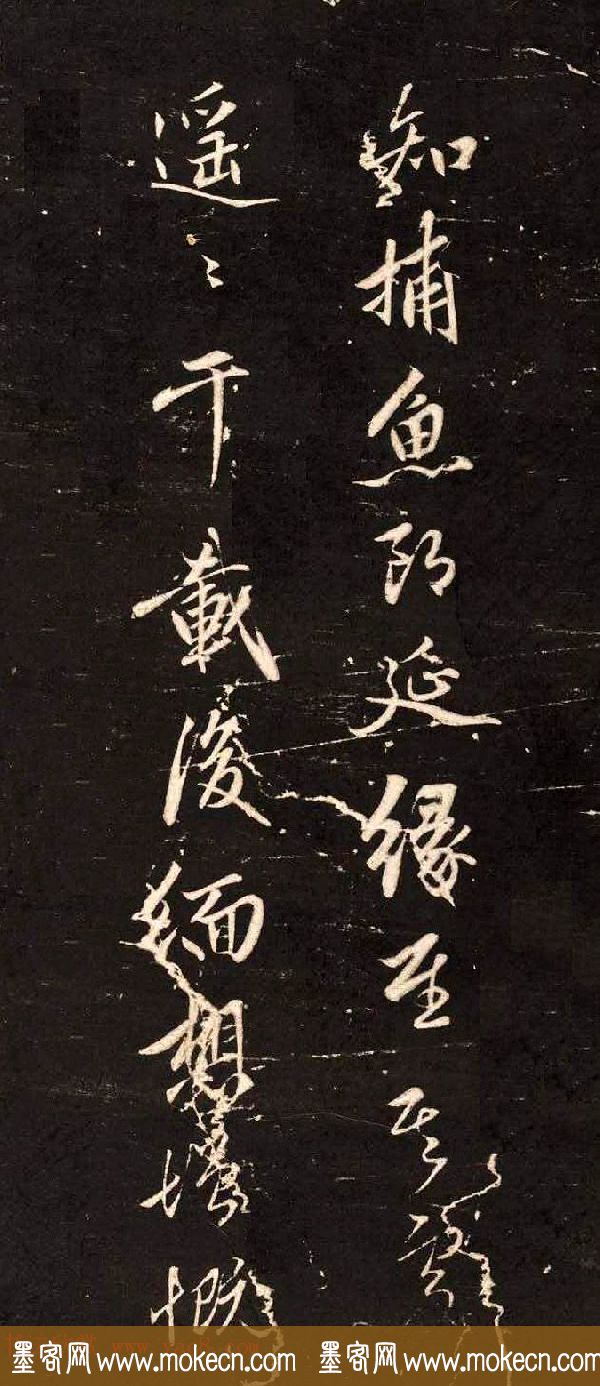 知捕魚郎延緣至其
遥〻千載後緬想增慨
墨客网www.mokecn.com 墨客网www.mokecn.com